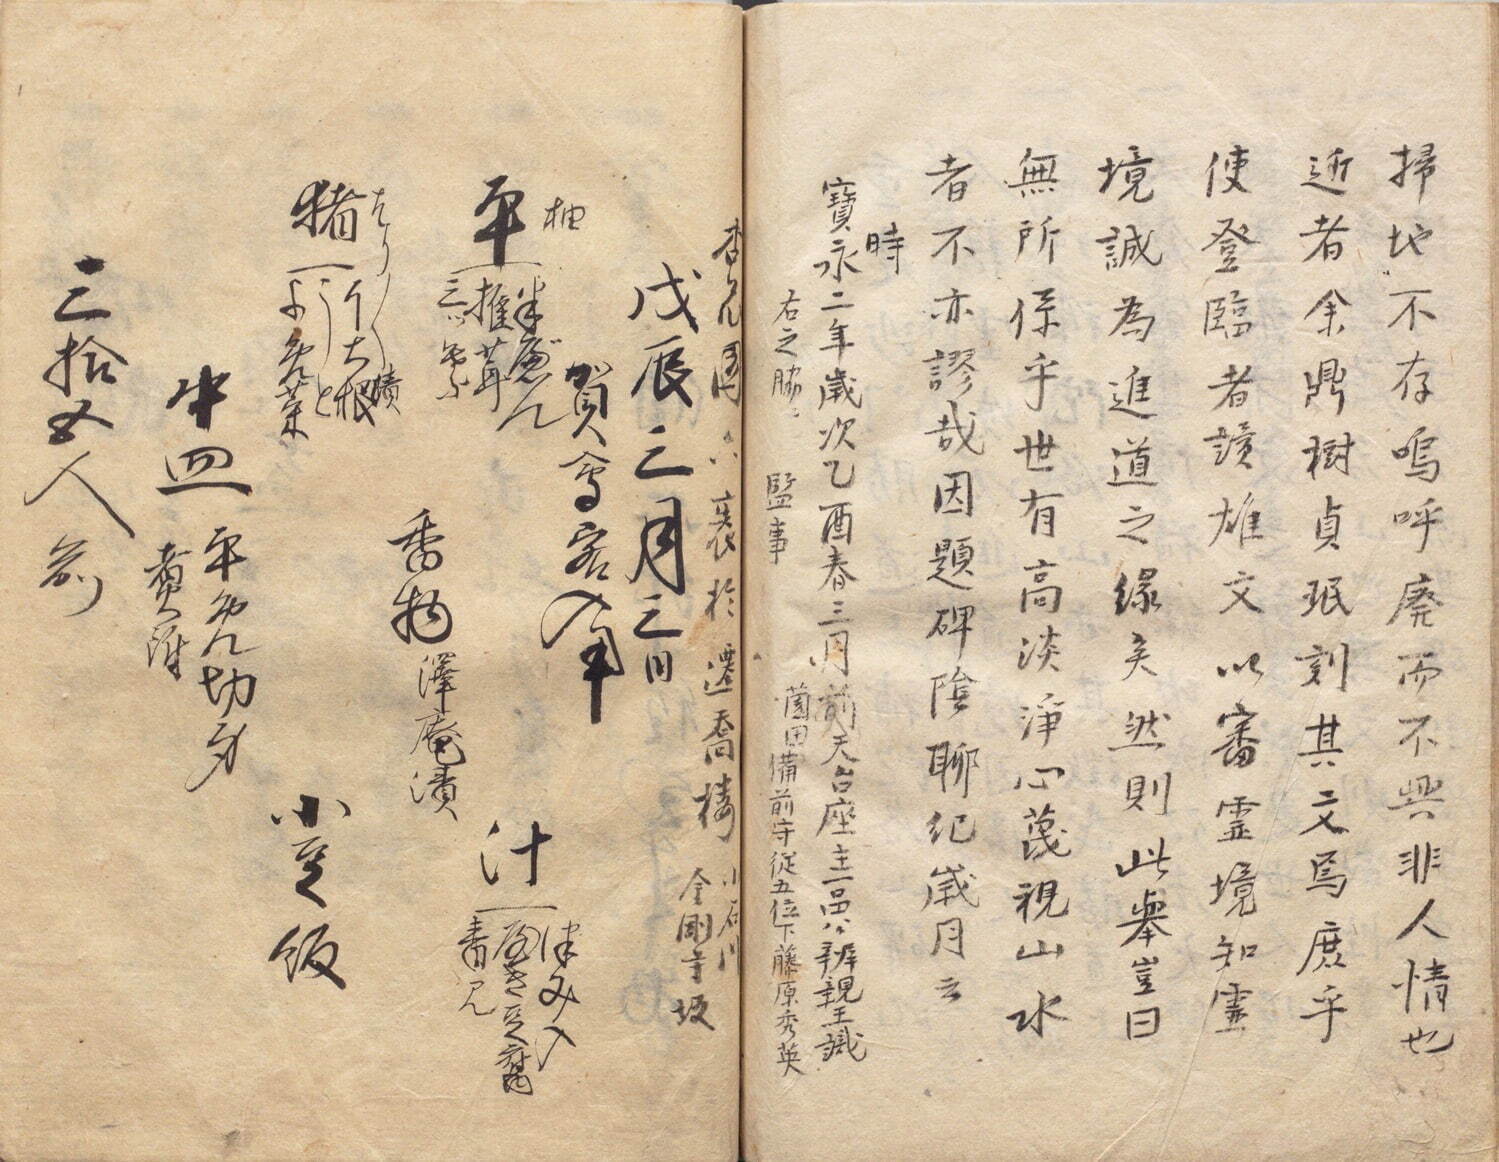 掃地不存嗚呼廃而不興非人情也
近者余鼎樹貞珉刻其文焉庶乎
使登臨者讀雄文以審霊境知霊
境誠為進道之縁矣然則此舉豈曰
無所係乎世有高淡淨心蔑視山水
者不亦謬哉因題碑陰聊紀歳月云
時
寶永二年歳次乙酉春三月前天台座主一品公辨親王識
右之脇ニ
監事
薗田備前守従五位下藤原秀英
六裘於遷喬樓
小石川
金剛寺坂
戊辰三月三日
賀会客入来
柚
平
半ぺん
推茸
汁
つみ入
焼き豆腐
香物
澤庵漬
猪
大根
小豆飯
中皿
三拾五人前